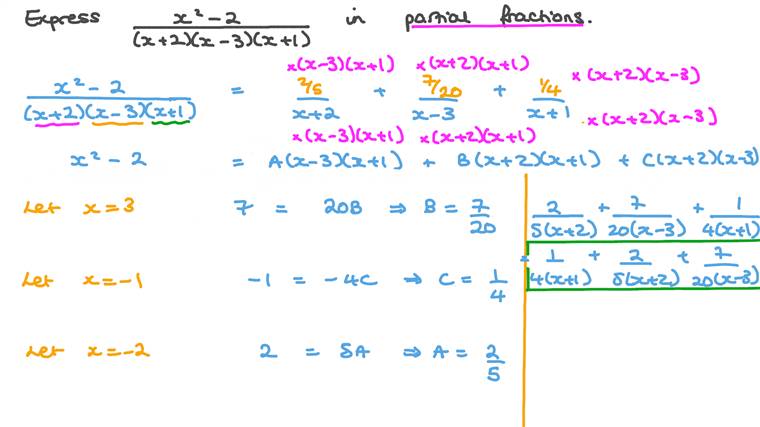 Express x² − 2 / (x+2)(x−3)(x+1) in partial fractions.
×(x−3)(x+1) ×(x+2)(x+1) ×(x+2)(x−3)
x² − 2 / (x+2)(x−3)(x+1) = 2/5 / x+2 + 7/20 / x−3 + 1/4 / x+1
×(x−3)(x+1) ×(x+2)(x+1) ×(x+2)(x−3)
x² − 2 = A(x−3)(x+1) + B(x+2)(x+1) + C(x+2)(x−3)
Let x=3 7 = 20B ⇒ B = 7/20
Let x=−1 −1 = −4C ⇒ C = 1/4
Let x=−2 2 = 5A ⇒ A = 2/5
2/5(x+2) + 7/20(x−3) + 1/4(x+1)
= 1/4(x+1) + 2/5(x+2) + 7/20(x−3)